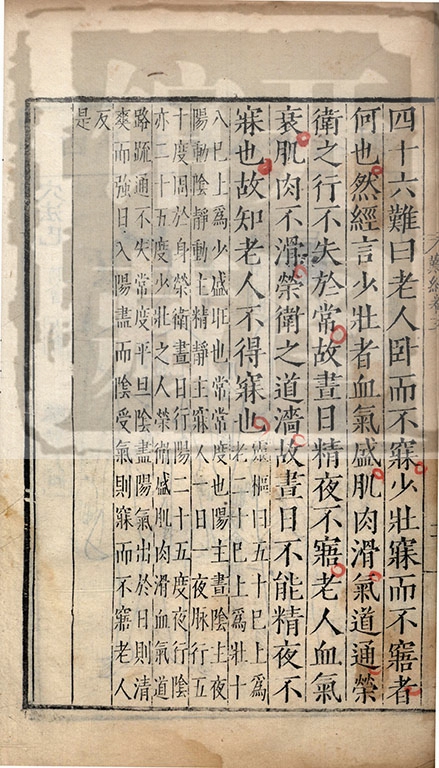 四十六難曰老人卧而不寐少壯寐而不寤者
何也然經言少壯者血氣盛肌肉滑氣道通榮
衛之行不失於常故晝日精夜不寤老人血氣
衰肌肉不滑榮衛之道濇故晝日不能精夜不
寐也故知老人不得寐也
靈樞曰五十已上爲
老二十已上爲壯十
八已上爲少盛旺也常常度也陽主晝陰主夜
陽動陰靜動主精靜主寐人一日一夜脉行五
十度周於身榮衛晝日行陽二十五度夜行陰
亦二十五度少壯之人榮衛盛肌肉滑血氣道
路疏通不失常度平旦陰盡陽氣出於日則清
爽而強日入陽盡而陰受氣則寐而不寤老人
反
是